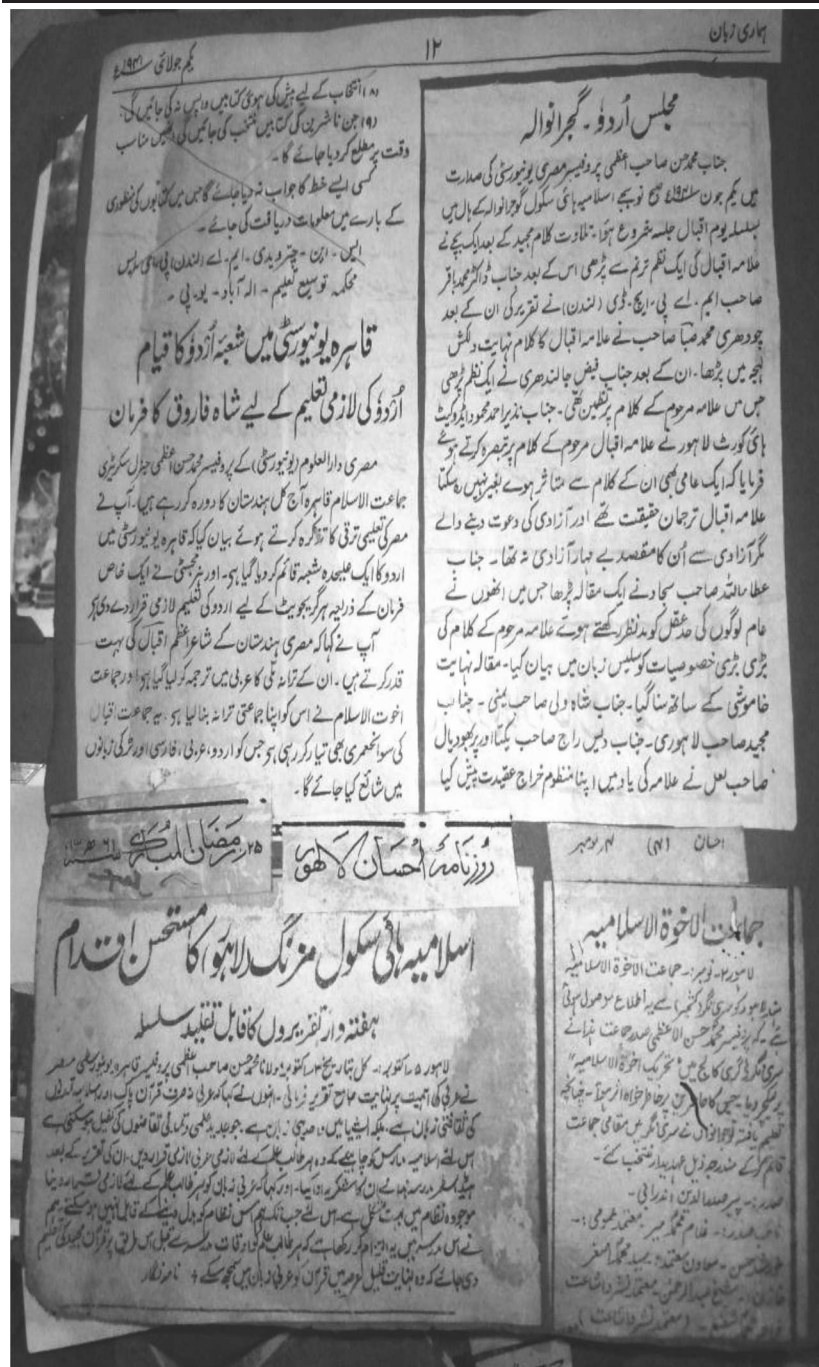 ہماری زبان
۱۲
یکم جولائی ۱۹۴۱ء
مجلس اُردو۔ گجرانوالہ
جناب محمد حسن صاحب اعظمی پروفیسر مصری یونیورسٹی کی صدارت
میں یکم جون ۱۹۴۱ء صبح نو بجے اسلامیہ ہائی سکول گوجرانوالہ کے ہال میں
بسلسلہ یوم اقبال جلسہ شروع ہوا۔ تلاوت کلام مجید کے بعد ایک بچے نے
علامہ اقبال کی ایک نظم ترنم سے پڑھی اس کے بعد جناب ڈاکٹر محمد باقر
صاحب ایم۔ اے پی۔ ایچ۔ ڈی (لندن) نے تقریر کی ان کے بعد
چودھری محمد صبا صاحب نے علامہ اقبال کا کلام نہایت دلکش
لہجہ میں پڑھا۔ ان کے بعد جناب فیض جالندھری نے ایک نظم پڑھی
جس میں علامہ مرحوم کے کلام پر تضمین تھی۔ جناب نذیر احمد محمود ایڈوکیٹ
ہائی کورٹ لاہور نے علامہ اقبال مرحوم کے کلام پر تبصرہ کرتے ہوئے
فرمایا کہ ایک عامی بھی ان کے کلام سے متاثر ہوے بغیر نہیں رہ سکتا
علامہ اقبال ترجمان حقیقت تھے اور آزادی کی دعوت دینے والے
مگر آزادی سے اُن کا مقصد بے مہار آزادی نہ تھا۔ جناب
عطاء اللہ صاحب سجاد نے ایک مقالہ پڑھا جس میں انھوں نے
عام لوگوں کی حد عقل کو مدنظر رکھتے ہوئے علامہ مرحوم کے کلام کی
بڑی بڑی خصوصیات کو سلیس زبان میں بیان کیا۔ مقالہ نہایت
خاموشی کے ساتھ سنا گیا۔ جناب شاہ ولی صاحب یمنی۔ جناب
مجید صاحب لاہوری۔ جناب دیس راج صاحب یکتا اور پربھو دیال
صاحب لعل نے علامہ کی یاد میں اپنا منظوم خراج عقیدت پیش کیا
(۸) انتخاب کے لیے پیش کی ہوئی کتابیں واپس نہ کی جائیں گی۔
(۹) جن ناشرین کی کتابیں منتخب کی جائیں گی انھیں مناسب
وقت پر مطلع کردیا جائے گا۔
کسی ایسے خط کا جواب نہ دیا جائے گا جس میں کتابوں کی منظوری
کے بارے میں معلومات دریافت کی جائے۔
ایس۔ این۔ چترویدی۔ ایم۔ اے (لندن) پی، ای، ایس
محکمہ توسیع تعلیم۔ الہ آباد۔ یو۔ پی۔
قاہرہ یونیورسٹی میں شعبۂ اُردو کا قیام
اُردو کی لازمی تعلیم کے لیے شاہ فاروق کا فرمان
مصری دارالعلوم (یونیورسٹی) کے پروفیسر محمد حسن اعظمی جنرل سکریٹری
جماعت الاسلام قاہرہ آج کل ہندستان کا دورہ کر رہے ہیں۔ آپ نے
مصر کی تعلیمی ترقی کا تذکرہ کرتے ہوئے بیان کیا کہ قاہرہ یونیورسٹی میں
اردو کا ایک علیحدہ شعبہ قائم کر دیا گیا ہی۔ اور ہز مجسٹی نے ایک خاص
فرمان کے ذریعہ ہر گریجویٹ کے لیے اردو کی تعلیم لازمی قرار دے دی ہی
آپ نے کہا کہ مصری ہندستان کے شاعر اعظم اقبال کی بہت
قدر کرتے ہیں۔ ان کے ترانہ ملّی کا عربی میں ترجمہ کر لیا گیا ہی اور جماعت
اخوت الاسلام نے اس کو اپنا جماعتی ترانہ بنا لیا ہی۔ یہ جماعت اقبال
کی سوانحعمری بھی تیار کر رہی ہی جس کو اردو، عربی، فارسی اور ترکی زبانوں
میں شائع کیا جائے گا۔
۲۵ رمضان المبارک ۱۳۶۱ھ
روزنامہ احسان لاہور
اسلامیہ ہائی سکول مزنگ (لاہور) کا مستحسن اقدام
ہفتہ وار تقریروں کا قابل تقلید سلسلہ
لاہور ۵ اکتوبر:۔ کل بتاریخ ۴ اکتوبر مولانا محمد حسن صاحب اعظمی پروفیسر قاہرہ یونیورسٹی مصر
نے عربی کی اہمیت پر نہایت جامع تقریر فرمائی۔ انہوں نے کہا کہ عربی نہ صرف قرآن پاک اور
کی ثقافتی زبان ہے۔ بلکہ ایشیا میں زبان ہے۔ جو جدید علمی تقاضوں کی کفیل ہو سکتی ہے
اس لئے اسلامیہ مدارس کو چاہیئے کہ وہ ہر طالب علم کے لئے لازمی عربی لازمی قرار دیں۔ ان کی تقریر کے بعد
ہیڈ ماسٹر مدرسہ نے ان کا شکریہ ادا کیا۔ اور کہا کہ عربی زبان کو ہر طالب علم کے لئے لازمی قرار دینا
موجودہ نظام میں بہت مشکل ہے۔ اس لئے جب تک ہم اس نظام کو بدل دینے کے قابل نہیں ہو سکتے ہم
نے اس مدرسہ میں یہ التزام کر رکھا ہے کہ ہر طالب علم کو اوقات مدرسہ سے قبل اس طریق پر قرآن مجید کی تعلیم
دی جائے کہ وہ نہایت قلیل عرصہ میں قرآن کو عربی زبان میں سمجھ سکے + نامہ نگار
احسان (۴) ۴ نومبر
جماعت الاخوۃ الاسلامیہ
لاہور ۲۔ نومبر:۔ جماعت الاخوۃ الاسلامیہ
کو سری نگر (کشمیر) سے یہ اطلاع موصول ہوئی
ہے۔ کہ پروفیسر محمد حسن الاعظمی صدر جماعت ہذا نے
سری نگر ڈگری کالج میں "تحریک اخوۃ الاسلامیہ"
پر لیکچر دیا۔ جس کا پر خاطر خواہ اثر ہوا۔ چنانچہ
تعلیم یافتہ نوجوانوں نے سری نگر میں مقامی جماعت
قائم کرکے مندرجہ ذیل عہدیدار منتخب کئے۔
صدر:۔ پیر صدرالدین اندرابی۔
نائب صدر:۔ غلام محمد میر۔ معتمد عمومی:۔
معاون معتمد:۔ سید محمد اصغر
شیخ عبدالرحمٰن۔ معتمد نشر و اشاعت
(معتمد نشر و اشاعت)